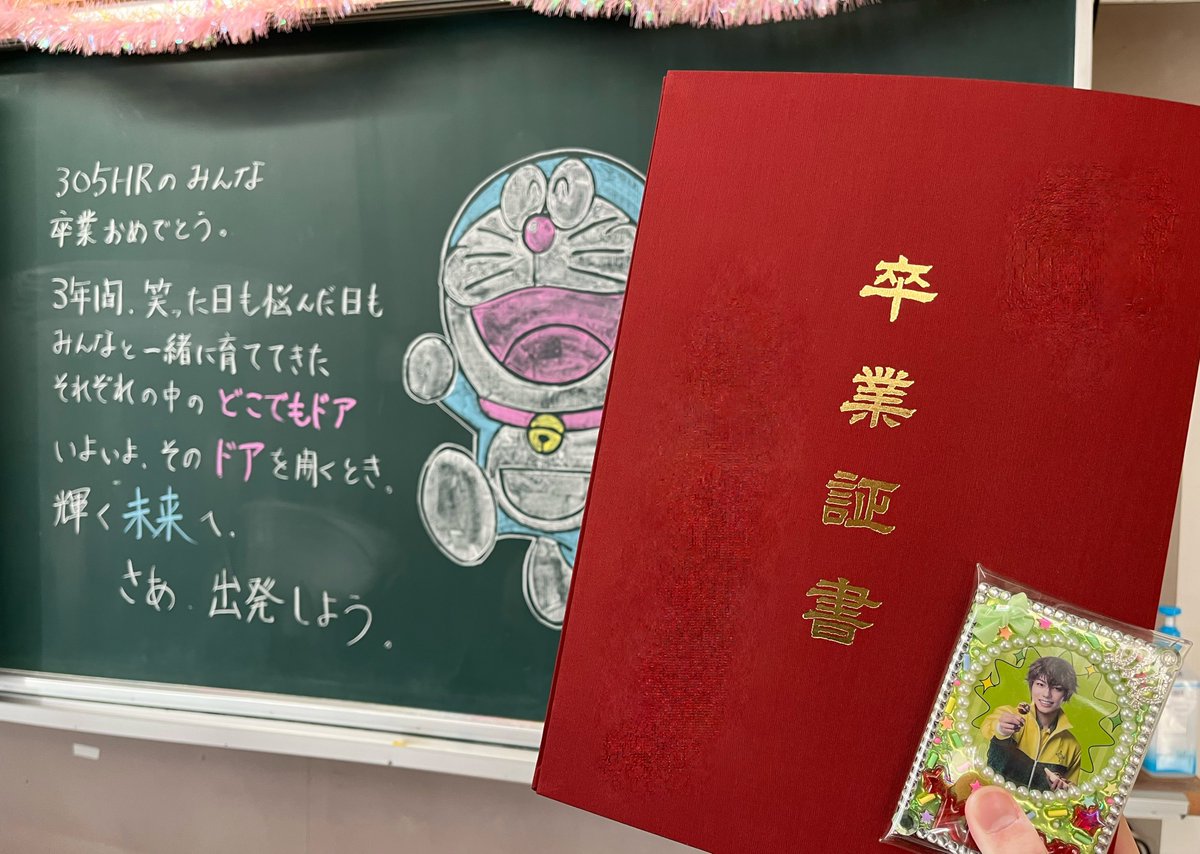 305HRのみんな
卒業おめでとう。
3年間、笑った日も悩んだ日も
みんなと一緒に育ててきた
それぞれの中のどこでもドア
いよいよ、そのドアを開くとき。
輝く未来へ、
さあ、出発しよう。
卒業証書